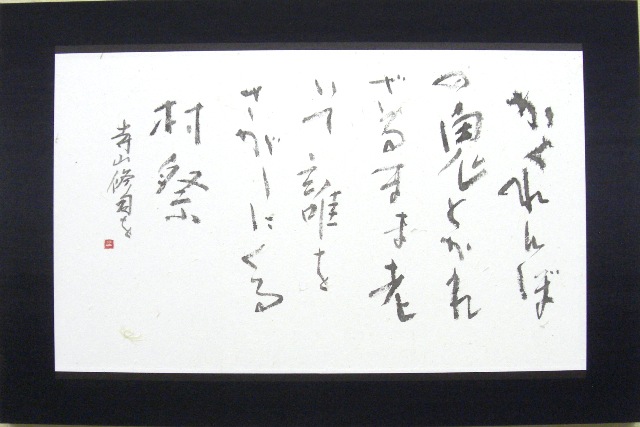 かくれんぼ
の鬼とかれ
ざるまま老
いて誰を
さがしにくる
村祭
寺山修司を